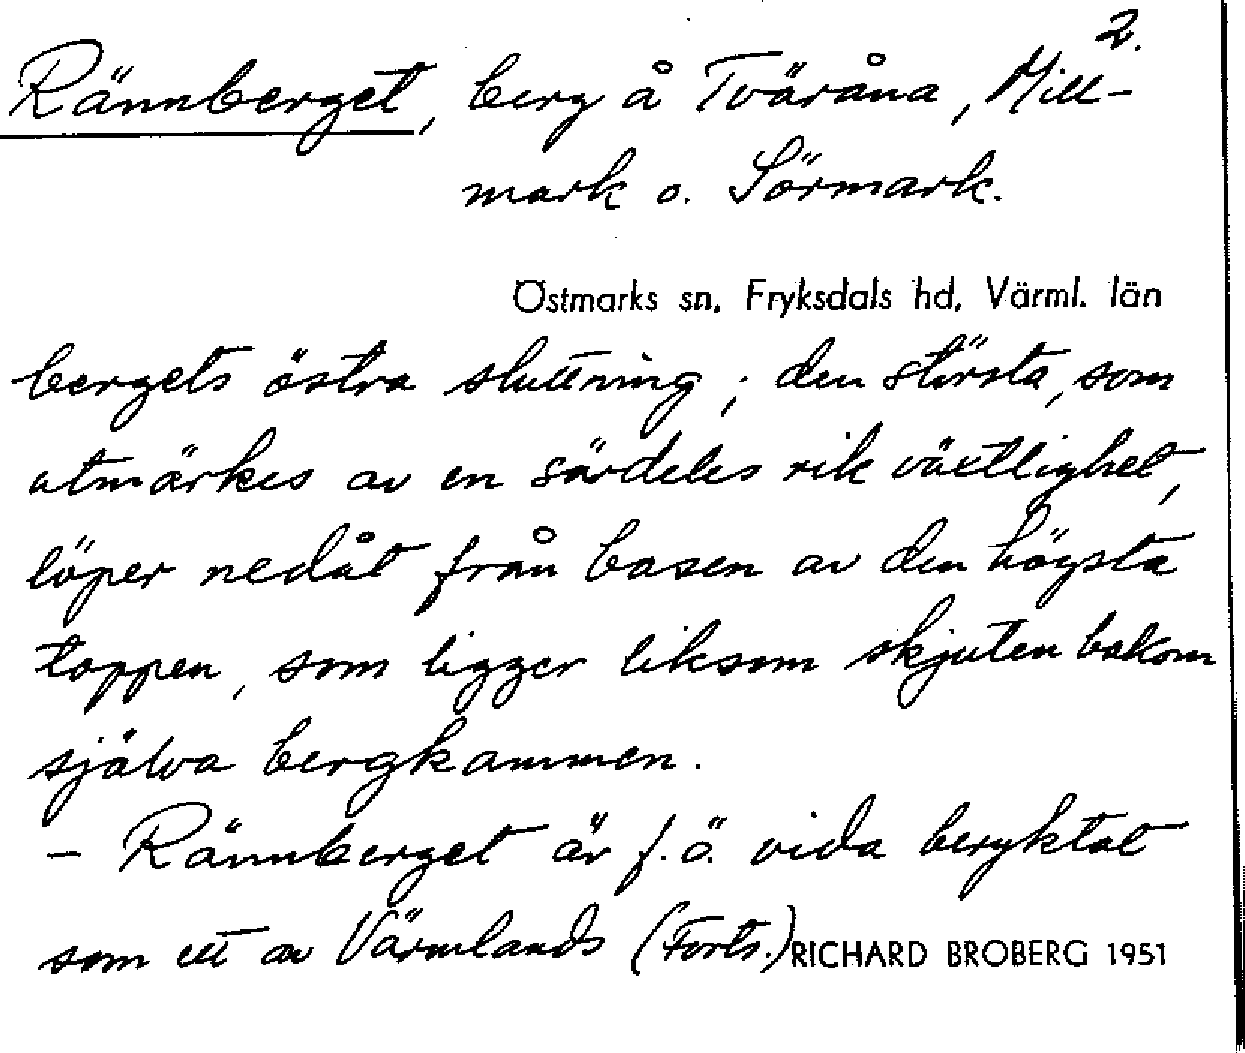 2.
Rännberget, berg å Tväråna, Mill-
mark o. Sörmark.
Östmarks sn, Fryksdals hd, Värml. län
bergets östra sluttning; den största, som
utmärkes av en särdeles rik växtlighet,
löper nedåt från basen av den högsta
toppen, som ligger liksom skjuten bakom
själva bergkammen.
- Rännberget är f.ö. vida beryktat
som ett av Värmlands (Forts.) RICHARD BROBERG 1951